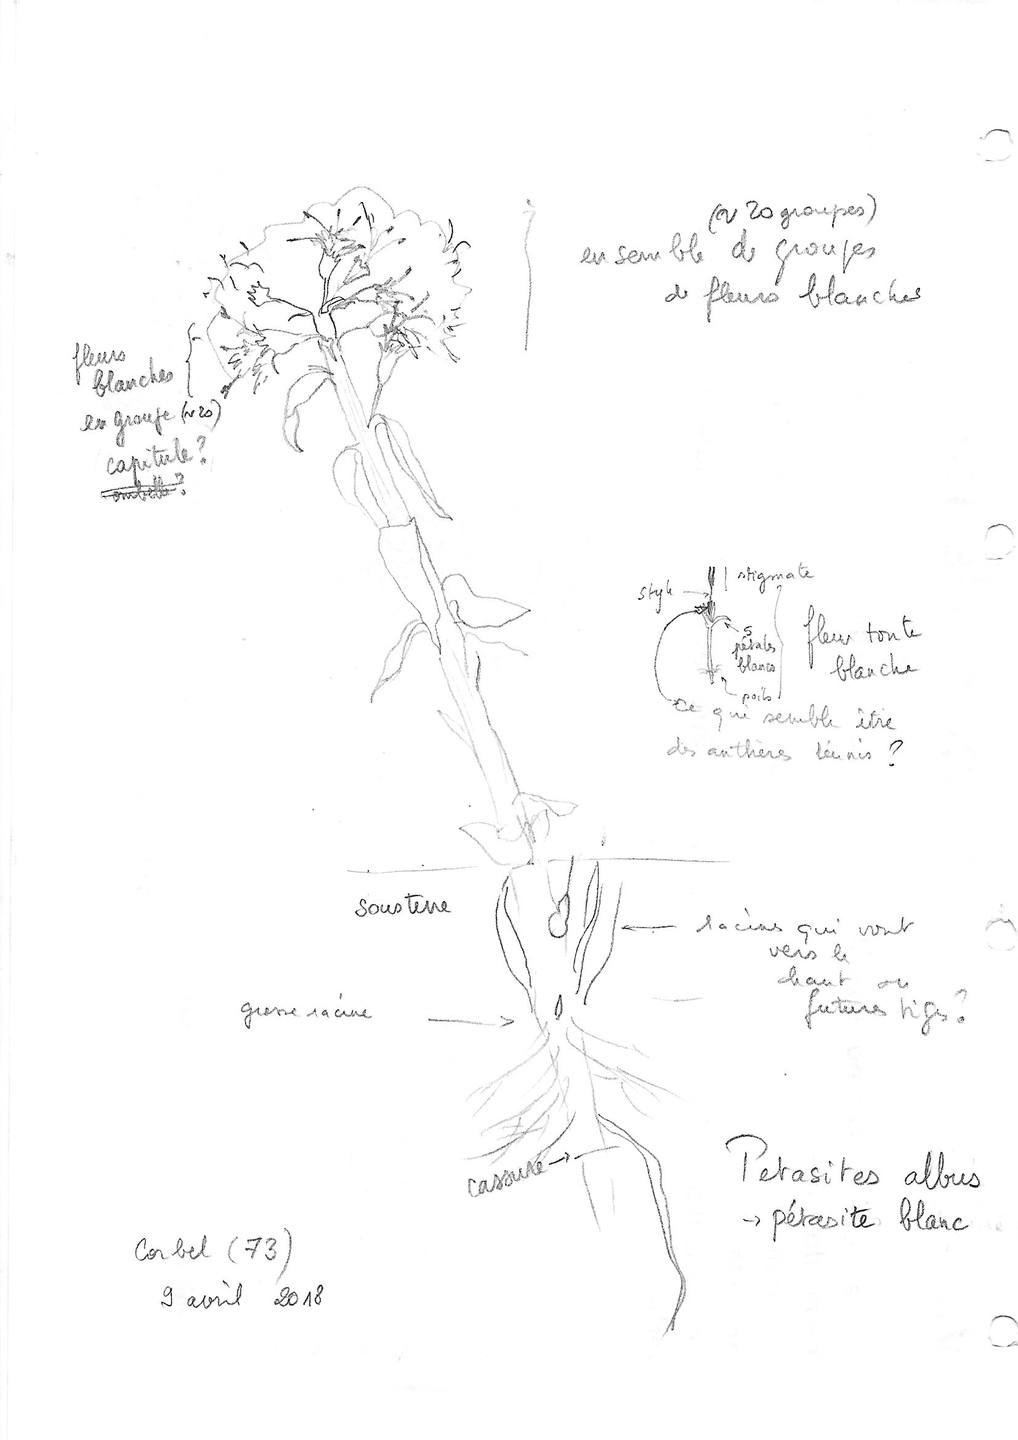 (~ 20 groupes)
ensemble de groupes
de fleurs blanches
fleurs
blanches
en groupe (~ 20)
capitule ?
ombelle ?
stigmate
style
5
pétales
blancs
poils
fleur toute
blanche
ce qui semble être
des anthères réunis ?
sous terre
racines qui vont
vers le
haut ou
futures tiges ?
grosse racine
cassure
Petasites albus
→ pétasite blanc
Corbel (73)
9 avril 2018